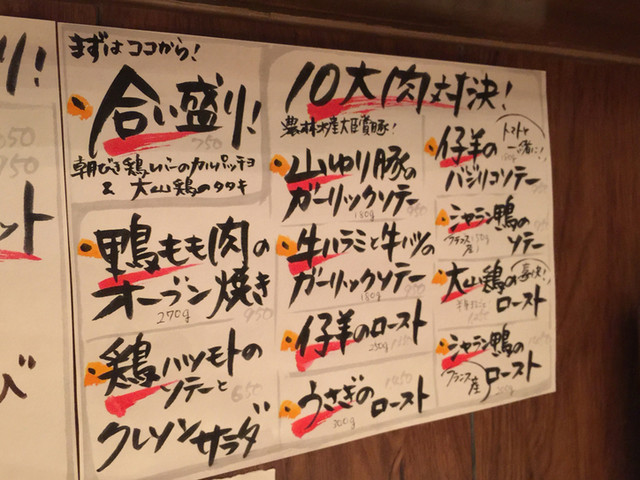 まずはココから!
合い盛り!
750
朝びき鶏レバーのカルパッチョ
& 大山鶏のタタキ
鴨もも肉の
オーブン焼き
270g 950
鶏ハツモトの
ソテーと 650
クレソンサラダ
10大肉対決!
農林水産大臣賞豚!
山ゆり豚の
ガーリックソテー
180g 950
牛ハラミと牛ハツの
ガーリックソテー
180g 950
仔羊のロースト
250g
うさぎの
ロースト
300g
トマトと
一緒に!
仔羊の
バジリコソテー
シャラン鴨の
フランス産
ソテー
大山鶏の
豪快!
ロースト
シャラン鴨の
フランス産
ロースト